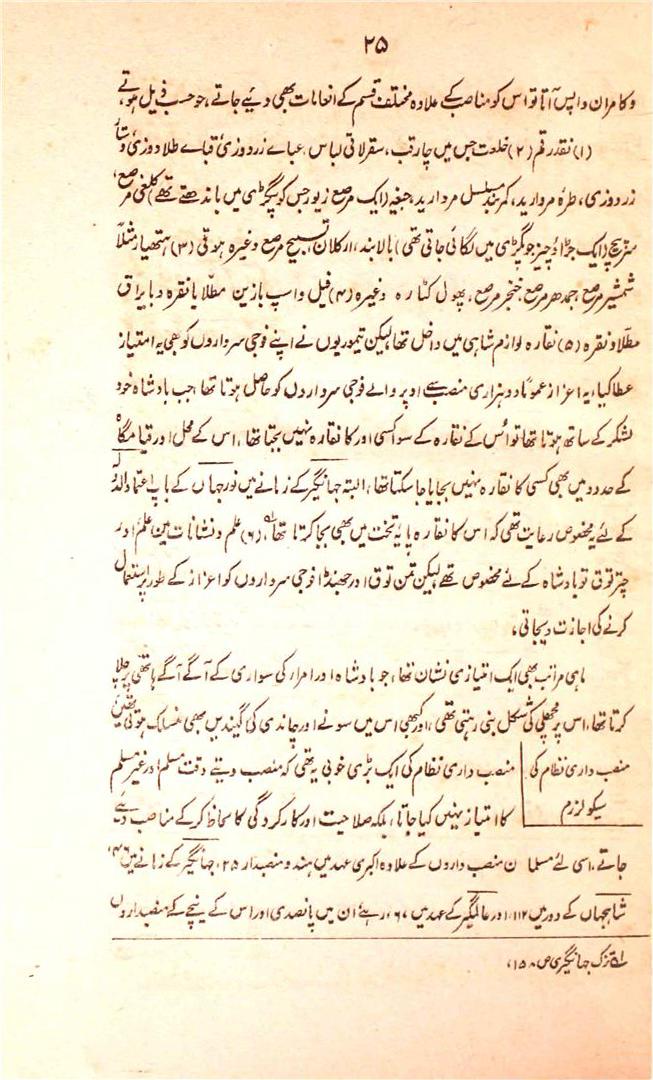 ۲۵
و کامران واپس آتا تو اس کو مناصب کے علاوہ مختلف قسم کے انعامات بھی دیئے جاتے، جو حسب ذیل ہوتے
(۱) نقد رقم (۲) خلعت جس میں چارقب، سقرلاتی لباس، عبائے زردوزی، قبائے طلادوزی، دستار
زردوزی، طرہ مروارید، کمر بند مسلسل مروارید، جیغہ (ایک مرصع زیور جس کو پگڑی میں باندھتے تھے) کلغی مرصع،
سرپیچ (ایک جڑاؤ چیز جو پگڑی میں لگائی جاتی تھی) بالا بند، ارکلان، تسبیح مرصع وغیرہ ہوتی (۳) ہتھیار مثلاً
شمشیر مرصع، جمدھر مرصع، خنجر مرصع، پھول کٹارہ وغیرہ (۴) فیل و اسپ بازین مطلّا یا نقرہ و با یراق
مطلّا و نقرہ (۵) نقارہ لوازم شاہی میں داخل تھا لیکن تیموریوں نے اپنے فوجی سرداروں کو بھی یہ امتیاز
عطا کیا، یہ اعزاز عموماً دو ہزاری منصب سے اوپر والے فوجی سرداروں کو حاصل ہوتا تھا، جب بادشاہ خود
لشکر کے ساتھ ہوتا تھا تو اُس کے نقارہ کے سوا کسی اور کا نقارہ نہیں بجتا تھا، اس کے محل اور قیام گاہ
کے حدود میں بھی کسی کا نقارہ نہیں بجایا جا سکتا تھا، البتہ جہانگیر کے زمانے میں نور جہاں کے باپ اعتماد الدولہ
کے لئے یہ مخصوص رعایت تھی کہ اس کا نقارہ پایۂ تخت میں بھی بجا کرتا تھا، (۶) علم و نشانات میں علم اور
چتر توق تو بادشاہ کے لئے مخصوص تھے لیکن تمن توق اور جھنڈا فوجی سرداروں کو اعزاز کے طور پر استعمال
کرنے کی اجازت دیجاتی،
ماہی مراتب بھی ایک امتیازی نشان تھا، جو بادشاہ اور امراء کی سواری کے آگے آگے ہاتھی پر چلا
کرتا تھا، اس پر مچھلی کی شکل بنی رہتی تھی، اور کبھی اس میں سونے اور چاندی کی گیندیں بھی منسلک ہوتی تھیں
منصب داری نظام کی منصب داری نظام کی ایک بڑی خوبی یہ تھی کہ منصب دیتے وقت مسلم اور غیر مسلم
سیکولرزم کا امتیاز نہیں کیا جاتا، بلکہ صلاحیت اور کارکردگی کا لحاظ کر کے مناصب دیئے
جاتے، اسی لئے مسلمان منصب داروں کے علاوہ اکبری عہد میں ہندو منصبدار ۲۵، جہانگیر کے زمانے میں ۴۶،
شاہجہاں کے دور میں ۱۱۲، اور عالمگیر کے عہد میں ۶۷، رہے، ان میں پانصدی اور اس کے نیچے کے منصبداروں
۱ تزک جہانگیری ص ۱۵۸،